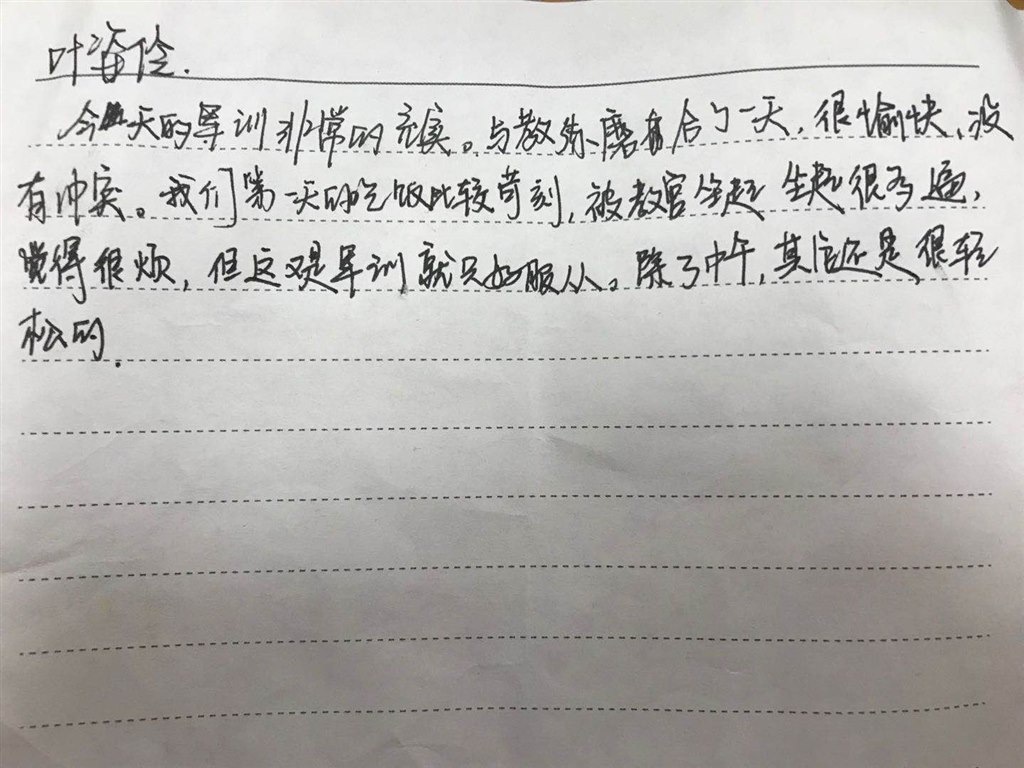 叶海伦.
今天的军训非常的充实。与教练磨合了一天,很愉快,没
有冲突。我们第一天的吃饭比较苛刻,被教官坐起坐起很多遍,
觉得很烦,但这又是军训就只好服从。除了中午,其它还是很轻
松的.